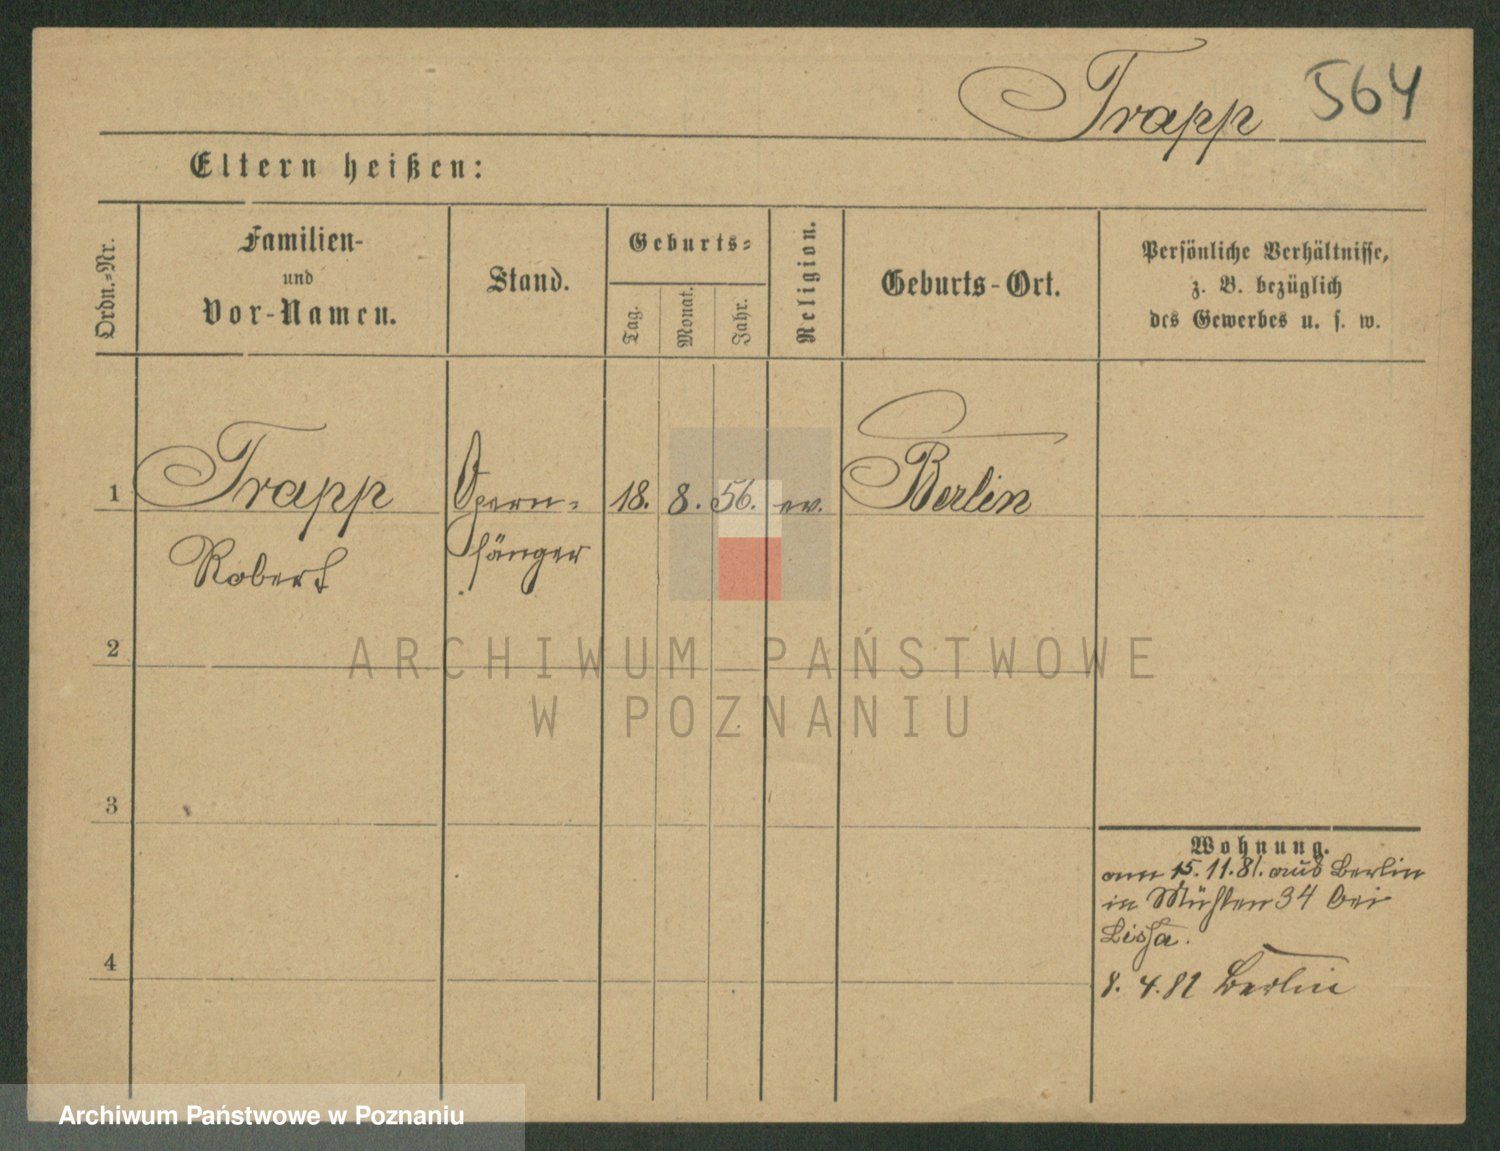 Trapp 564
Eltern heißen:
Ordn.-Nr.
Familien-
und
Vor-Namen.
Stand.
Geburts-
Tag.
Monat.
Jahr.
Religion.
Geburts-Ort.
Persönliche Verhältnisse,
z. B. bezüglich
des Gewerbes u. s. w.
1 Trapp Opern- 18. 8. 56. ev. Berlin
Robert sänger
2
ARCHIWUM PAŃSTWOWE
W POZNANIU
3
Wohnung.
am 15.11.81. aus Berlin
in Mühlen 34 bei
Lissa.
4
8. 4. 82 Berlin
Archiwum Państwowe w Poznaniu